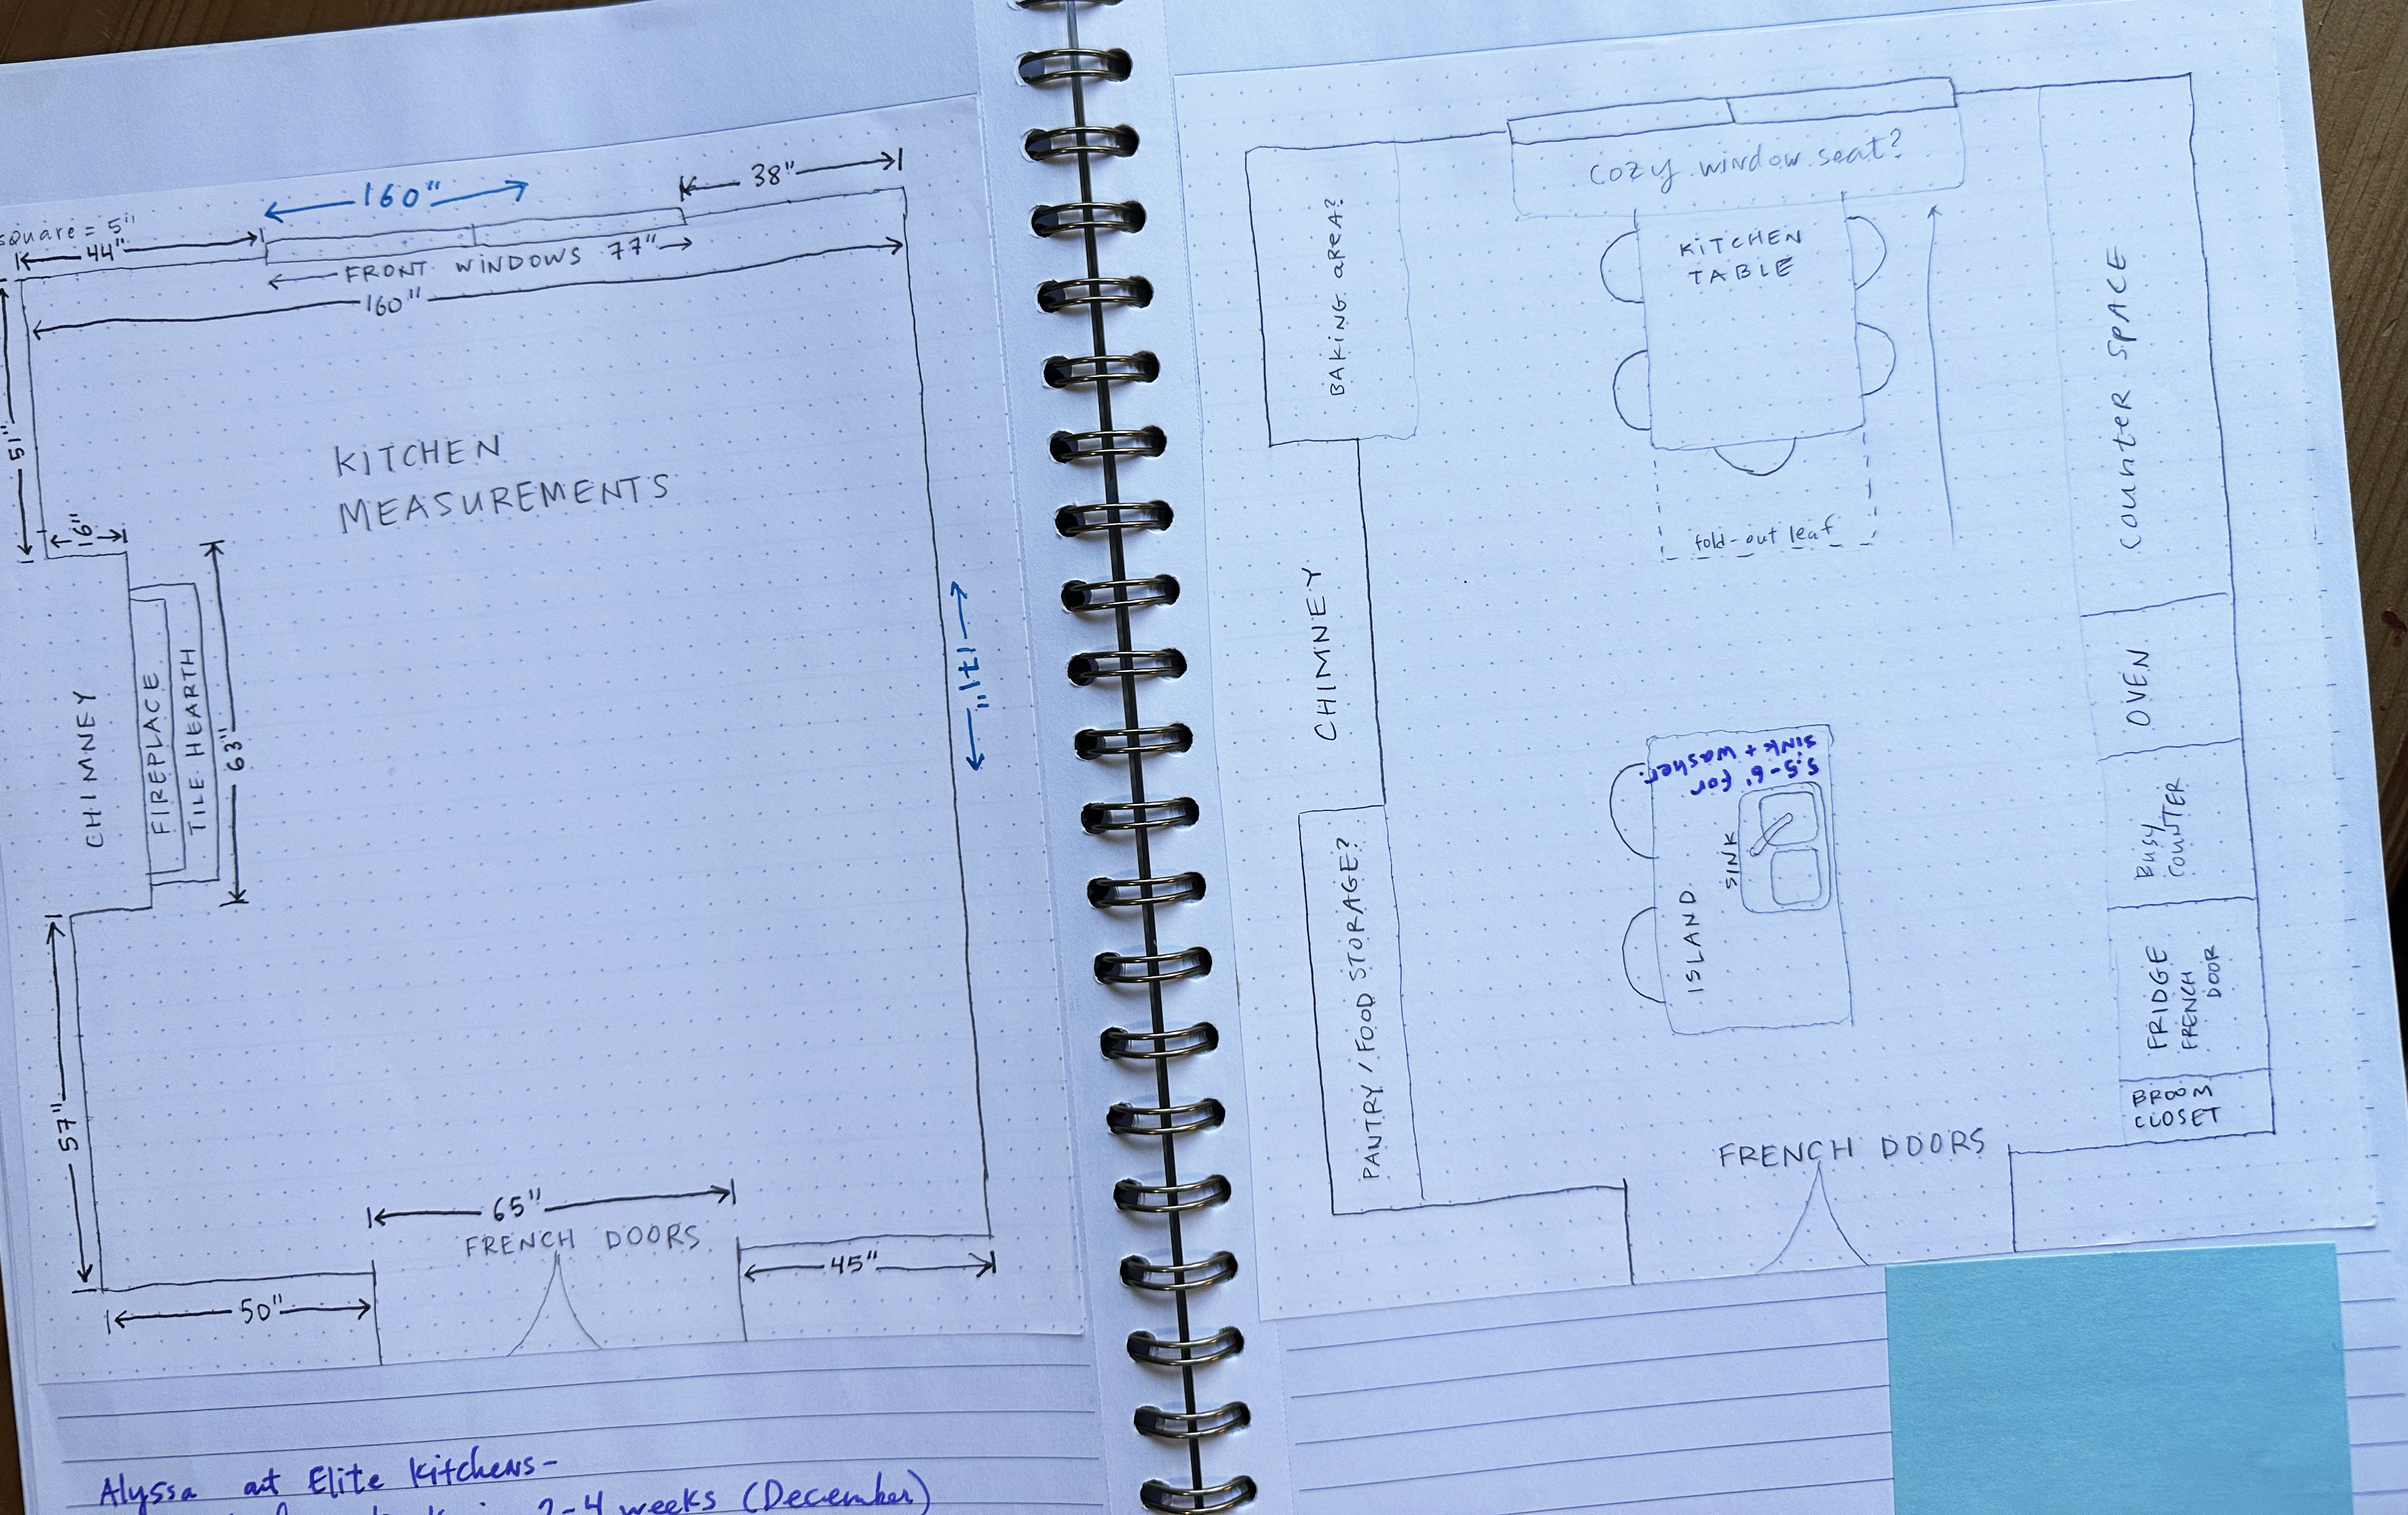 160"
38"
square = 5"
44"
FRONT WINDOWS 77"
160"
51"
KITCHEN
MEASUREMENTS
16"
CHIMNEY
FIREPLACE
TILE HEARTH
63"
171"
57"
65"
FRENCH DOORS
45"
50"
Alyssa at Elite Kitchens-
2-4 weeks (December)
Cozy window seat?
BAKING AREA?
KITCHEN
TABLE
fold-out leaf
COUNTER SPACE
CHIMNEY
OVEN
5.5-6' for
sink + washer.
SINK
ISLAND
BUSY
COUNTER
PANTRY / FOOD STORAGE?
FRIDGE
FRENCH
DOOR
BROOM
CLOSET
FRENCH DOORS